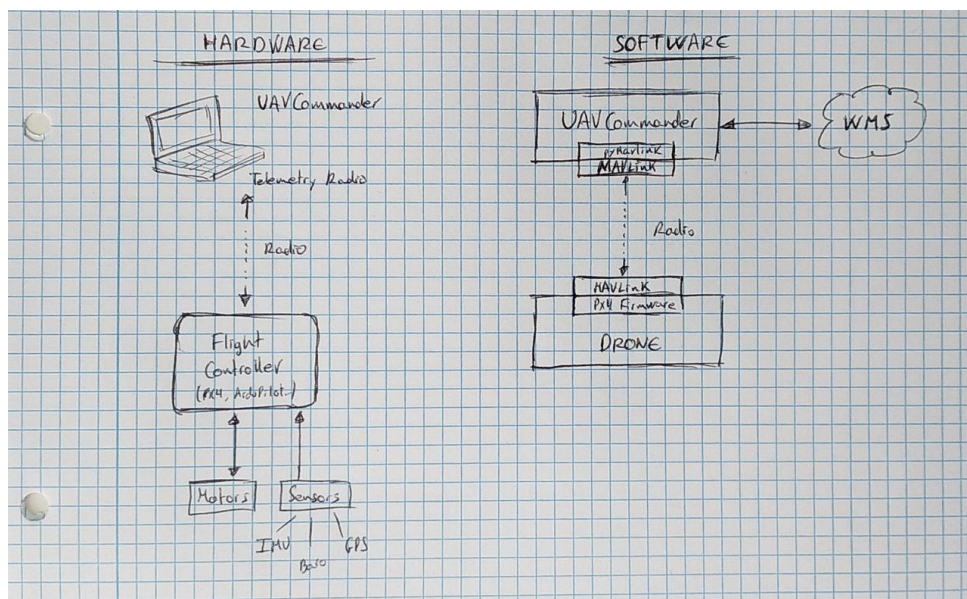 HARDWARE
UAVCommander
Telemetry Radio
Radio
Flight
Controller
(PX4, ArduPilot..)
Motors
Sensors
IMU
Baro
GPS
SOFTWARE
UAVCommander
pyMavlink
MAVLink
WMS
Radio
MAVLink
PX4 Firmware
DRONE